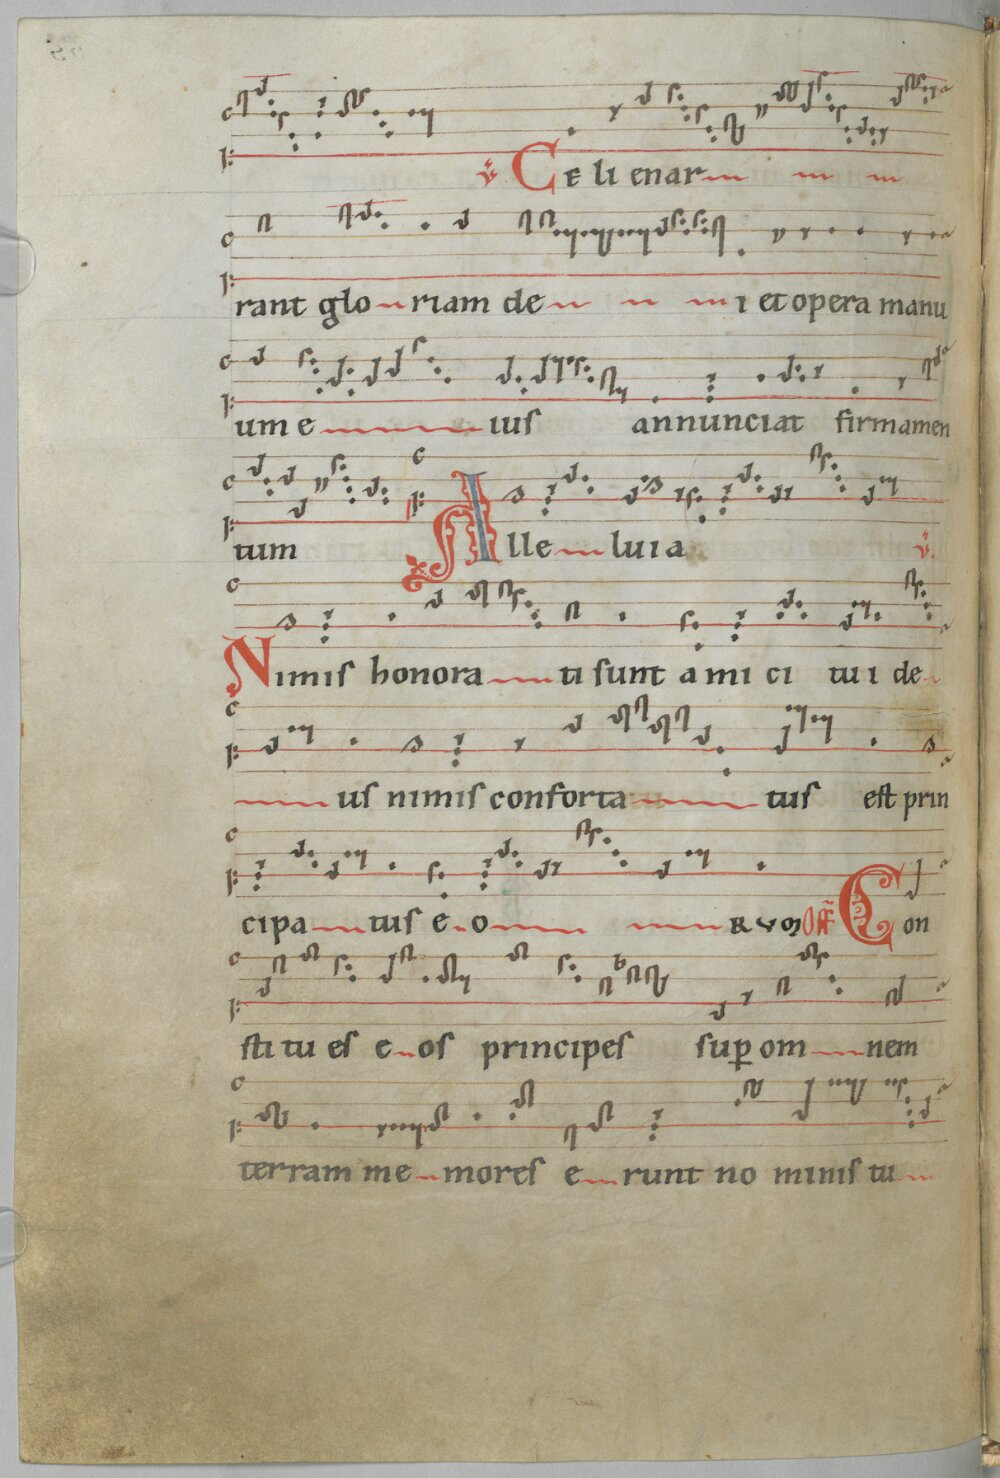 ℣ Celi enar
rant gloriam dei et opera manu
um eius annunciat firmamen
tum Alleluia ℣
Nimis honorati sunt amici tui de
us nimis confortatus est prin
cipatus eorum Off Con
stitues eos principes sup omnem
terram memores erunt nominis tu